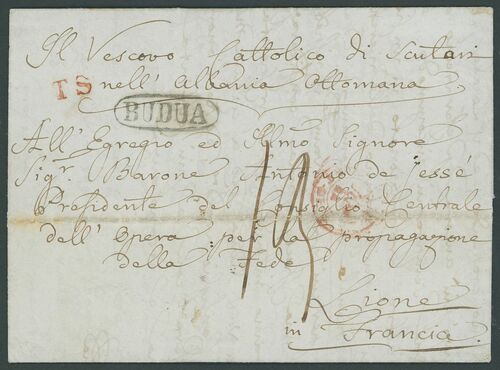 Il Vescovo Cattolico di Scutari
nell' Albania Ottomana
TS
BUDUA
All' Egregio ed Illmo Signore
Sigr. Barone Antonio de Jessé
Presidente del Consiglio Centrale
dell' Opera per la propagazione
della Fede
Lione
in Francia.